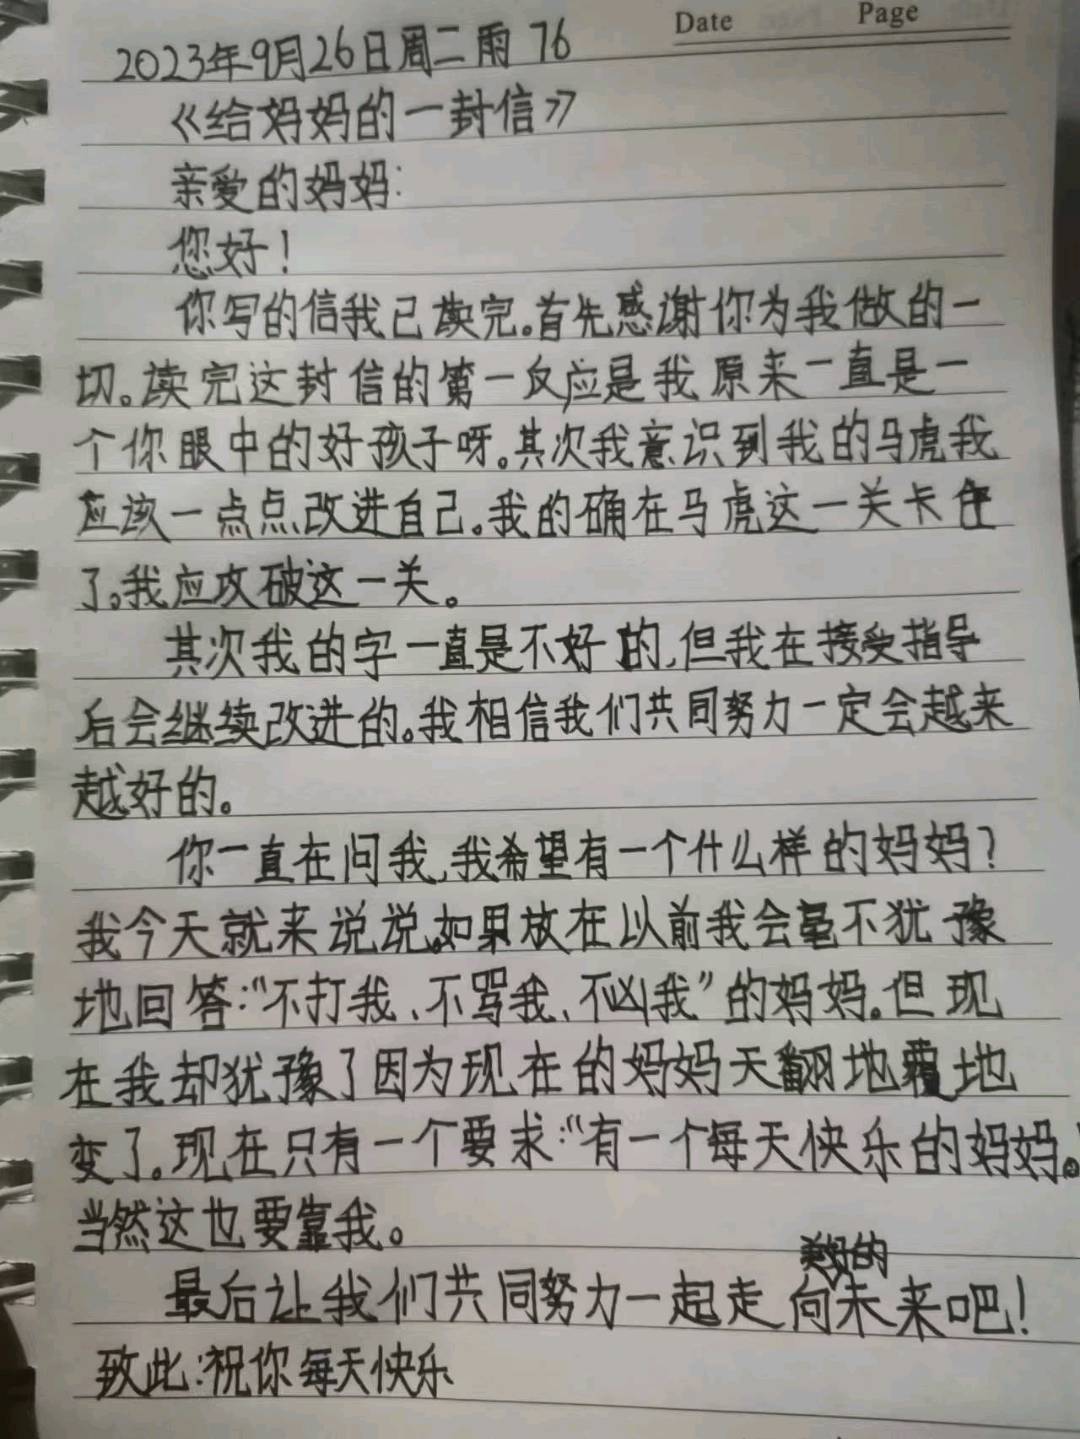 Date Page
2023年9月26日周二雨 76
《给妈妈的一封信》
亲爱的妈妈:
您好!
你写的信我已读完。首先感谢你为我做的一
切。读完这封信的第一反应是我原来一直是一
个你眼中的好孩子呀。其次我意识到我的马虎我
应该一点点改进自己。我的确在马虎这一关卡住
了。我应攻破这一关。
其次我的字一直是不好的,但我在接受指导
后会继续改进的。我相信我们共同努力一定会越来
越好的。
你一直在问我,我希望有一个什么样的妈妈?
我今天就来说说。如果放在以前我会毫不犹豫
地回答:“不打我、不骂我、不凶我”的妈妈。但现
在我却犹豫了因为现在的妈妈天翻地覆地
变了。现在只有一个要求:“有一个每天快乐的妈妈。”
当然这也要靠我。
最后让我们共同努力一起走向美好的未来吧!
致此:祝你每天快乐